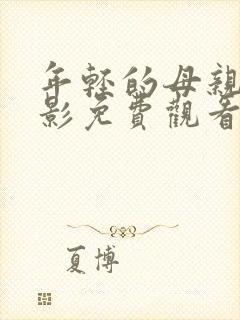 年轻的母親
影免費觀看
夏博